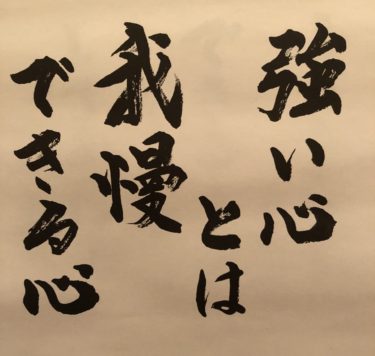 強い心
とは
我慢
できる心